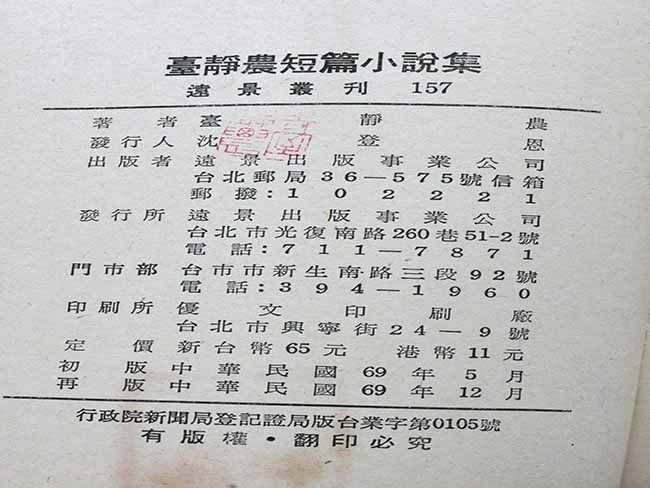 臺靜農短篇小說集
遠景叢刊 157
著者 臺靜農
發行人 沈登恩
出版者 遠景出版事業公司
台北郵局36—575號信箱
郵撥:102221
發行所 遠景出版事業公司
台北市光復南路260巷51-2號
電話:711—7871
門市部 台市市新生南路三段92號
電話:394—1960
印刷所 優文印刷廠
台北市興寧街24—9號
定價 新台幣65元 港幣11元
初版 中華民國69年5月
再版 中華民國69年12月
行政院新聞局登記證局版台業字第0105號
有版權・翻印必究